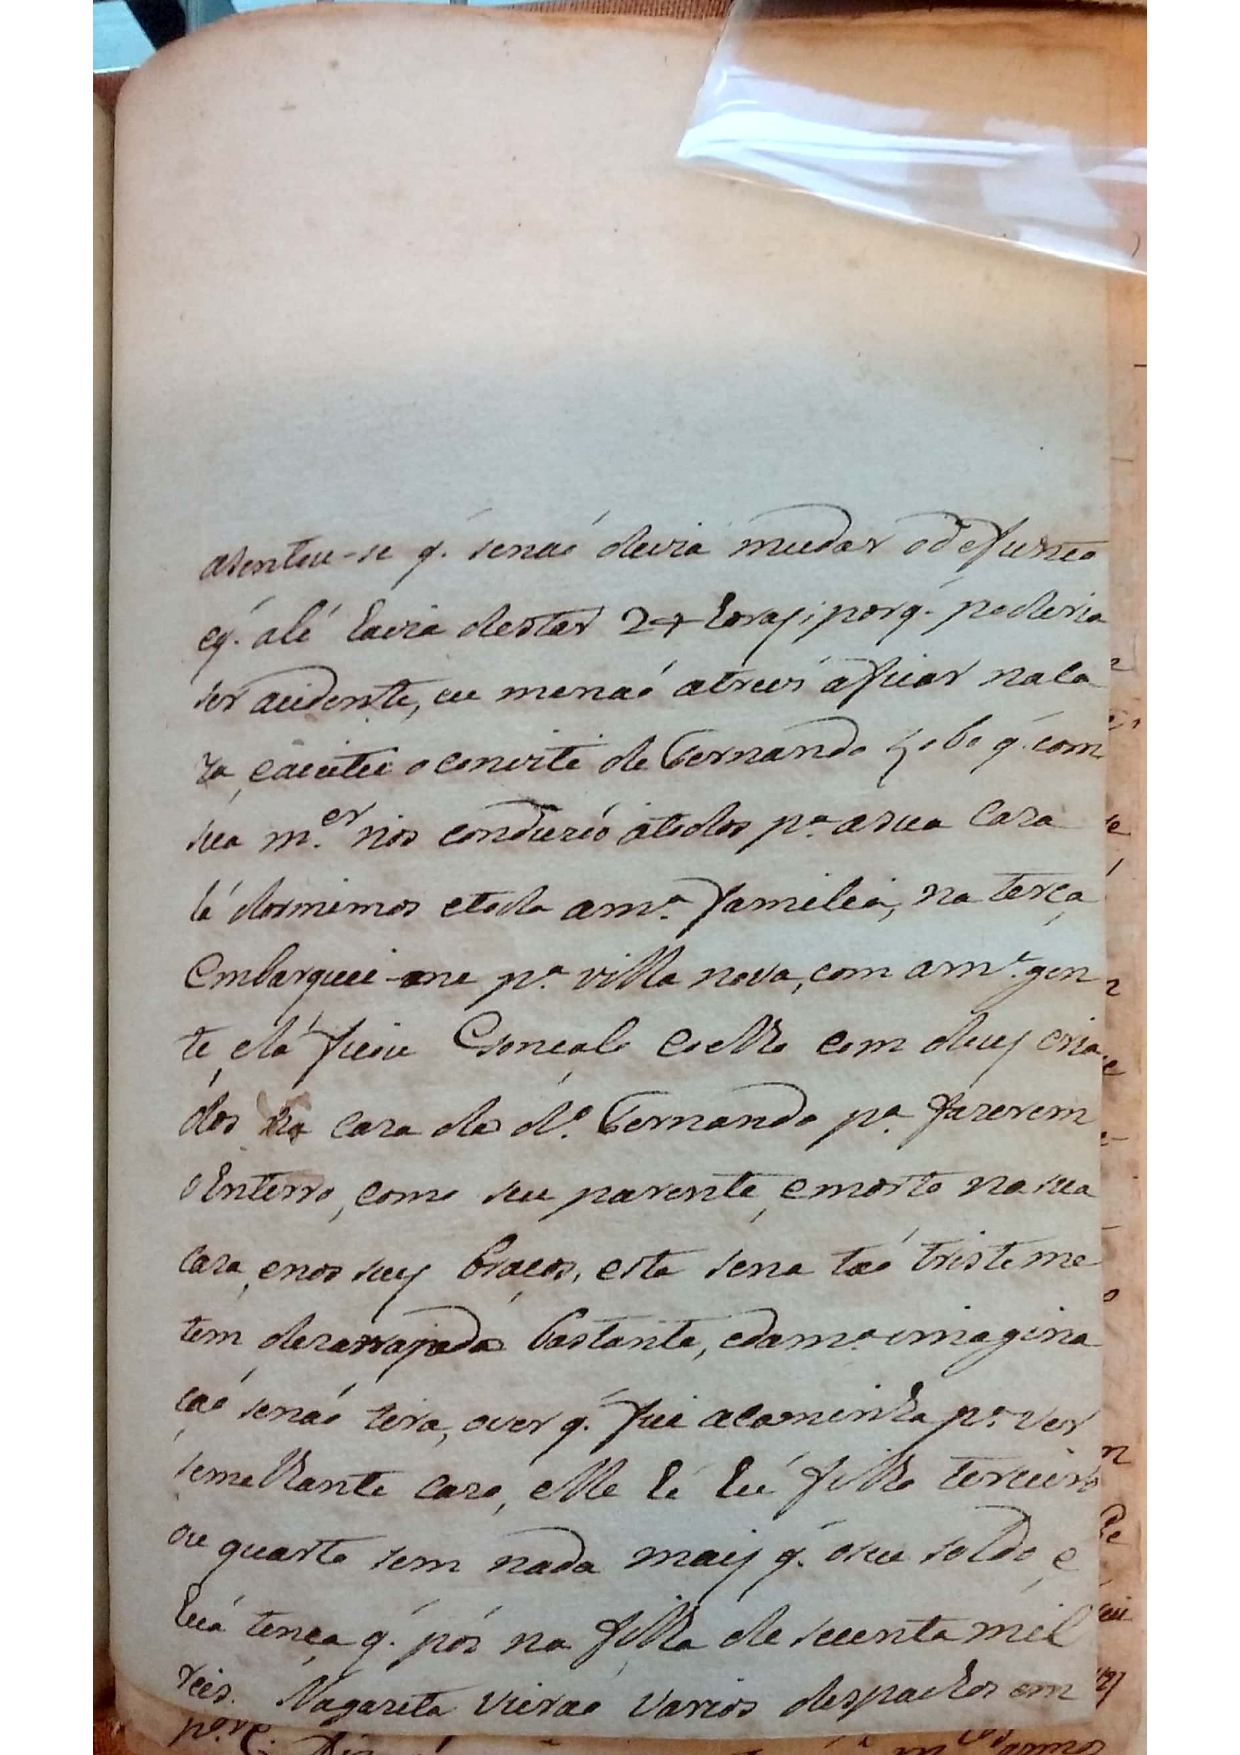 asentou-se q. senaó devia mudar odefunto
eq. alé havia destar 24 horas; porq. poderia
ser acidente, eu menaó atrevi aficar naca
za, eaceitei oconvite de Fernando Lobo q. com
sua m.er nos conduzió átodos p.a asua caza
lá dormimos etoda am.a familia, na terça
Embarquei-me p.a villa nova, com am.a gen
te, elá ficou Gonçalo Coelho com duas cria
dos na caza do d.o Fernando p.a fazerem
oEnterro, como seu parente, emorto nasua
caza, enos seus braços, esta sena taó triste me
tem dezarrajado bastante, edam.a imagina
çaó senaó tira, over q. fui acaminha p.a ver
semelhante cazo, elle hé hú filho terceiro
ou quarto sem nada mais q. oseu soldo, e
huá tença q. pós na filha de secenta mil
reis. Nagazeta vieraó varios despachos em